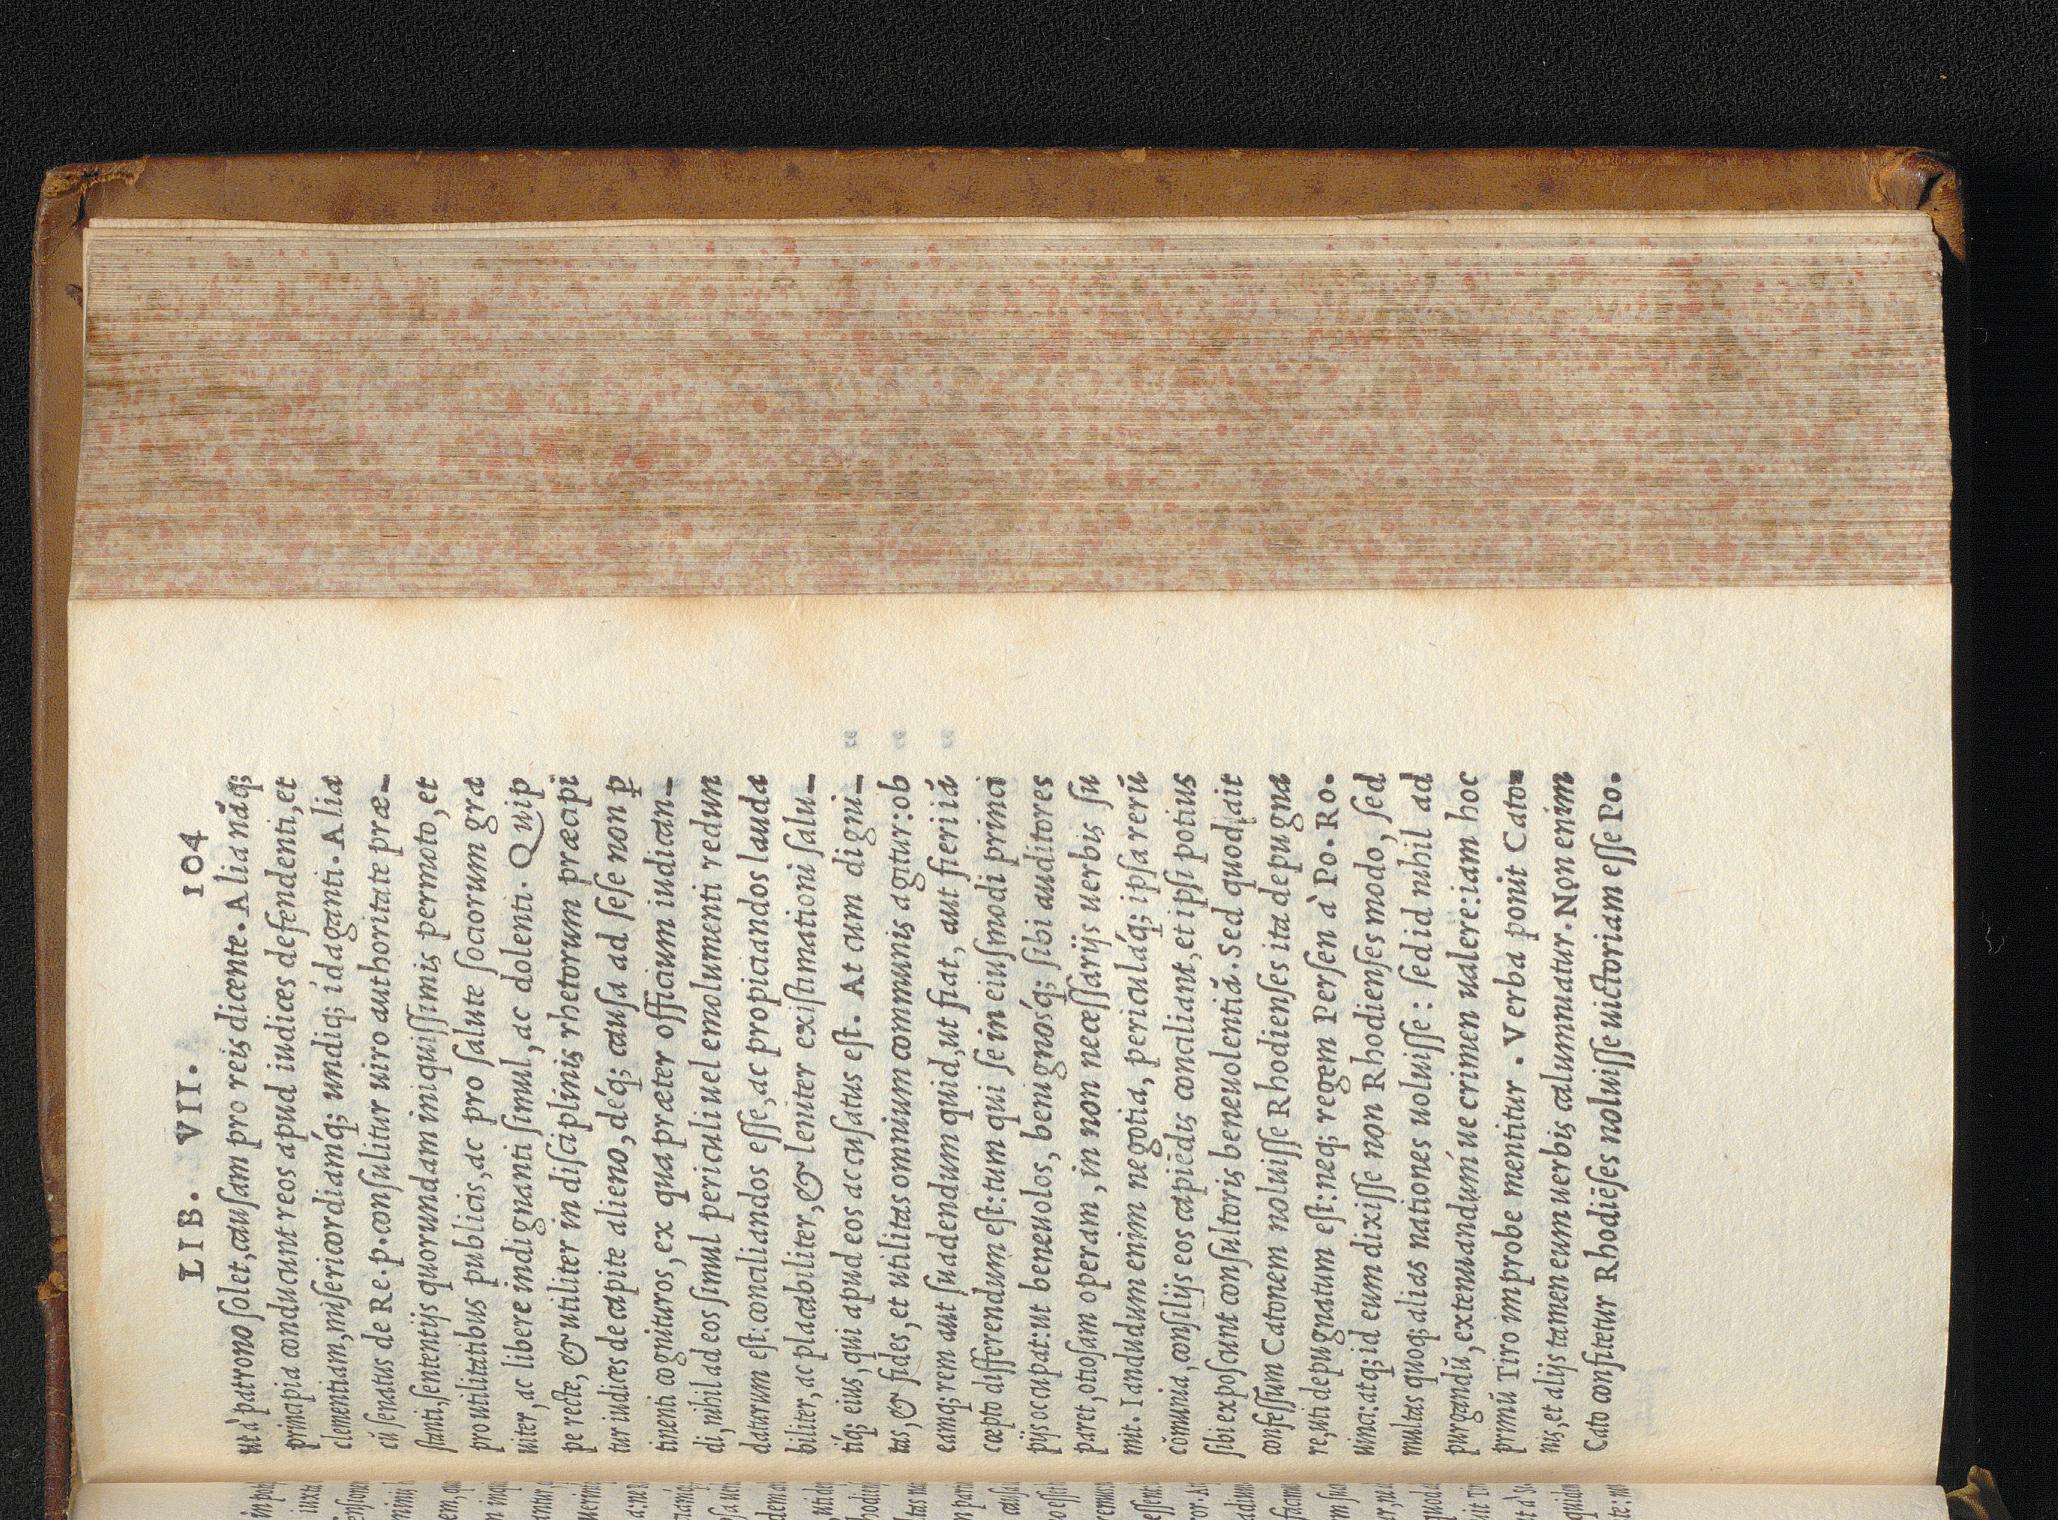 LIB. VII. 104
ut à patrono solet, causam pro reis dicente. Alia nāq;
principia conducunt reos apud iudices defendenti, et
clementiam, misericordiamq́; undiq; idaganti. Alia
cū senatus de Re.p. consulitur uiro authoritate præ-
stanti, sententijs quorundam iniquissimis permoto, et
pro utilitatibus publicis, ac pro salute sociorum gra
uiter, ac libere indignanti simul, ac dolenti. Quip
pe recte, & utiliter in disciplinis rhetorum præcipi
tur iudices de capite alieno, déq; causa ad sese non ꝑ
tinenti cognituros, ex qua præter officium iudican-
di, nihil ad eos simul periculi uel emolumenti redun
daturum est: conciliandos esse, ac propiciandos lauda
biliter, ac placabiliter, & leniter existimationi salu-
tiq́; eius, qui apud eos accusatus est. At cum digni-
tas, & fides, et utilitas omnium communis agitur: ob
eamq; rem aut suadendum quid, ut fiat, aut fieri iā
cœpto differendum est: tum qui se in eiusmodi princi
pijs occupat: ut beneuolos, benignosq́; sibi auditores
paret, otiosam operam, in non necessarijs uerbis su
mit. Iandudum enim negotia, periculáq; ipsa rerū
cōmunia, consilijs eos capiēdis conciliant, et ipsi potius
sibi exposcunt consultoris beneuolentiā. Sed quod ait
confessum Catonem noluisse Rhodienses ita depugna
re, uti depugnatum est: neq; regem Persen à Po. Ro.
uinci: atq; id eum dixisse non Rhodienses modo, sed
multas quoq; alias nationes uoluisse: sed id nihil ad
purgandū, extenuandumúe crimen ualere: iam hoc
primū Tiro improbe mentitur. Verba ponit Cato-
nis, et alijs tamen eum uerbis calumnuatur. Non enim
Cato confitetur Rhodiēses noluisse uictoriam esse Po.